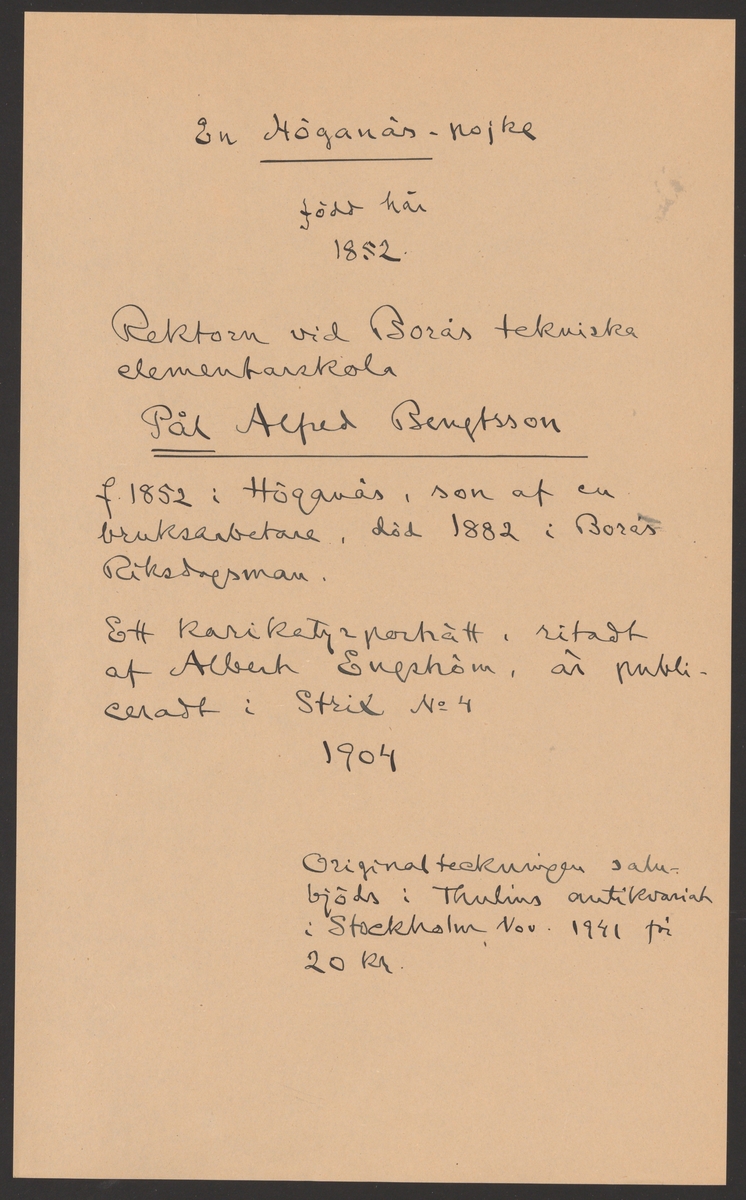 En Höganäs-pojke
född här
1852.
Rektorn vid Borås tekniska
elementarskola
Pål Alfred Bengtsson
f. 1852 i Höganäs, son af en
bruksarbetare, död 1882 i Borås
Riksdagsman.
Ett karikatyrporträtt, ritadt
af Albert Engström, är publi-
ceradt i Strix No 4
1904
Originalteckningen salu-
bjöds i Thulins antikvariat
i Stockholm, Nov. 1941 för
20 kr.